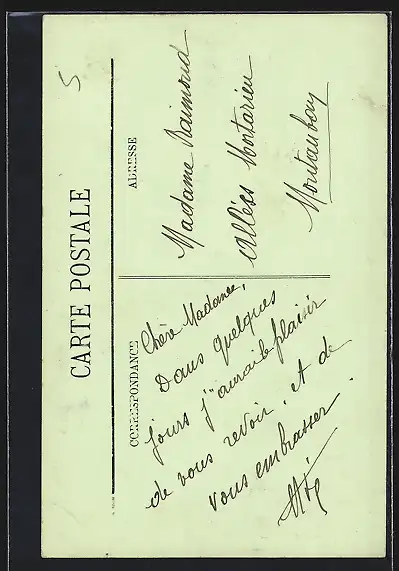 5
CARTE POSTALE
CORRESPONDANCE
Chère Madame,
Dans quelques
jours j'aurai le plaisir
de vous revoir et de
vous embrasser.
ADRESSE
Madame Raimond
Allées Mortarieu
Montauban